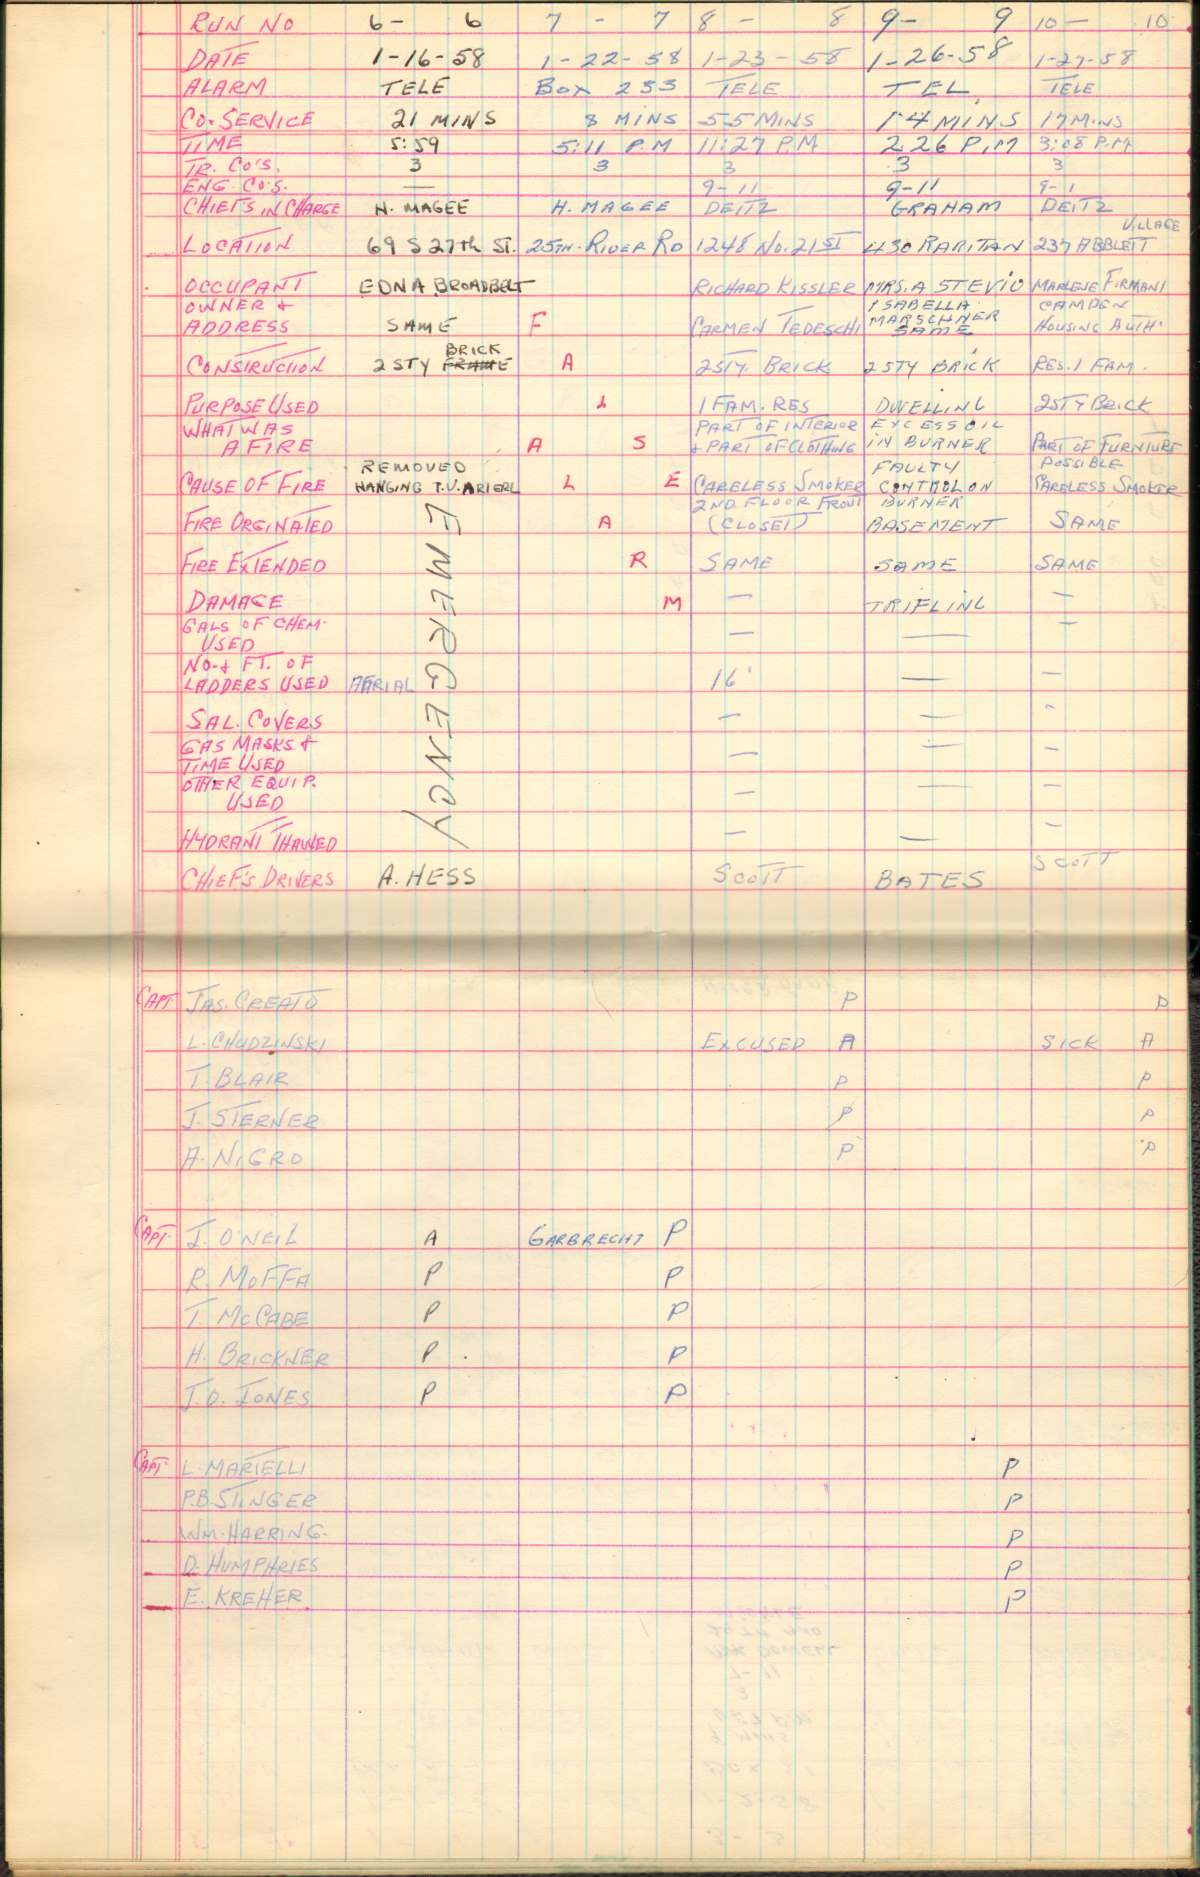 RUN NO 6- 6 7 - 7 8 - 8 9- 9 10 - 10
DATE 1-16-58 1-22-58 1-23-58 1-26-58 1-27-58
ALARM TELE BOX 253 TELE TEL. TELE
CO. SERVICE 21 MINS 8 MINS 55 MINS 14 MINS 17 MINS
TIME 5:59 5:11 P.M 11:27 P.M 2:26 P.M 3:08 P.M
TR. CO'S. 3 3 3 3 3
ENG. CO'S. — 9-11 9-11 9-1
CHIEFS IN CHARGE H. MAGEE H. MAGEE DEITZ GRAHAM DEITZ
VILLAGE
LOCATION 69 S 27th ST. 25TH-RIVER RD 1248 NO. 21 ST 430 RARITAN 237 ABBLETT
OCCUPANT EDNA BROADBELT RICHARD KISSLER MRS. A STEVIO MARLENE FIRMANI
OWNER & ISABELLA CAMDEN
ADDRESS SAME F CARMEN TEDESCHI MARSCHNER SAME HOUSING AUTH.
BRICK
CONSTRUCTION 2 STY FRAME A 2 STY. BRICK 2 STY BRICK RES. 1 FAM.
PURPOSE USED L 1 FAM. RES DWELLING 2 STY BRICK
WHAT WAS PART OF INTERIOR EXCESS OIL
A FIRE A S & PART OF CLOTHING IN BURNER PART OF FURNITURE
REMOVED FAULTY POSSIBLE
CAUSE OF FIRE HANGING T.V. ARIERL L E CARELESS SMOKER CONTROL ON CARELESS SMOKER
2ND FLOOR FRONT BURNER
FIRE ORGINATED A (CLOSET) BASEMENT SAME
FIRE EXTENDED R SAME SAME SAME
DAMAGE M — TRIFLING —
EMERGENCY
GALS OF CHEM.
USED — — —
NO. & FT. OF
LADDERS USED AERIAL 16' — —
SAL. COVERS — — -
GAS MASKS &
TIME USED — — —
OTHER EQUIP.
USED — — —
HYDRANT THAWED — — —
CHIEF'S DRIVERS A. HESS SCOTT BATES SCOTT
CAPT JAS. CREATO P P
L. CHUDZINSKI EXCUSED A SICK A
T. BLAIR P P
J. STERNER P P
A. NIGRO P P
CAPT. J. O'NEIL A GARBRECHT P
R. MOFFA P P
T. McCABE P P
H. BRICKNER P P
J.D. JONES P P
CAPT. L. MARIELLI P
P.B. STINGER P
WM. HARRING. P
D. HUMPHRIES P
E. KREHER P